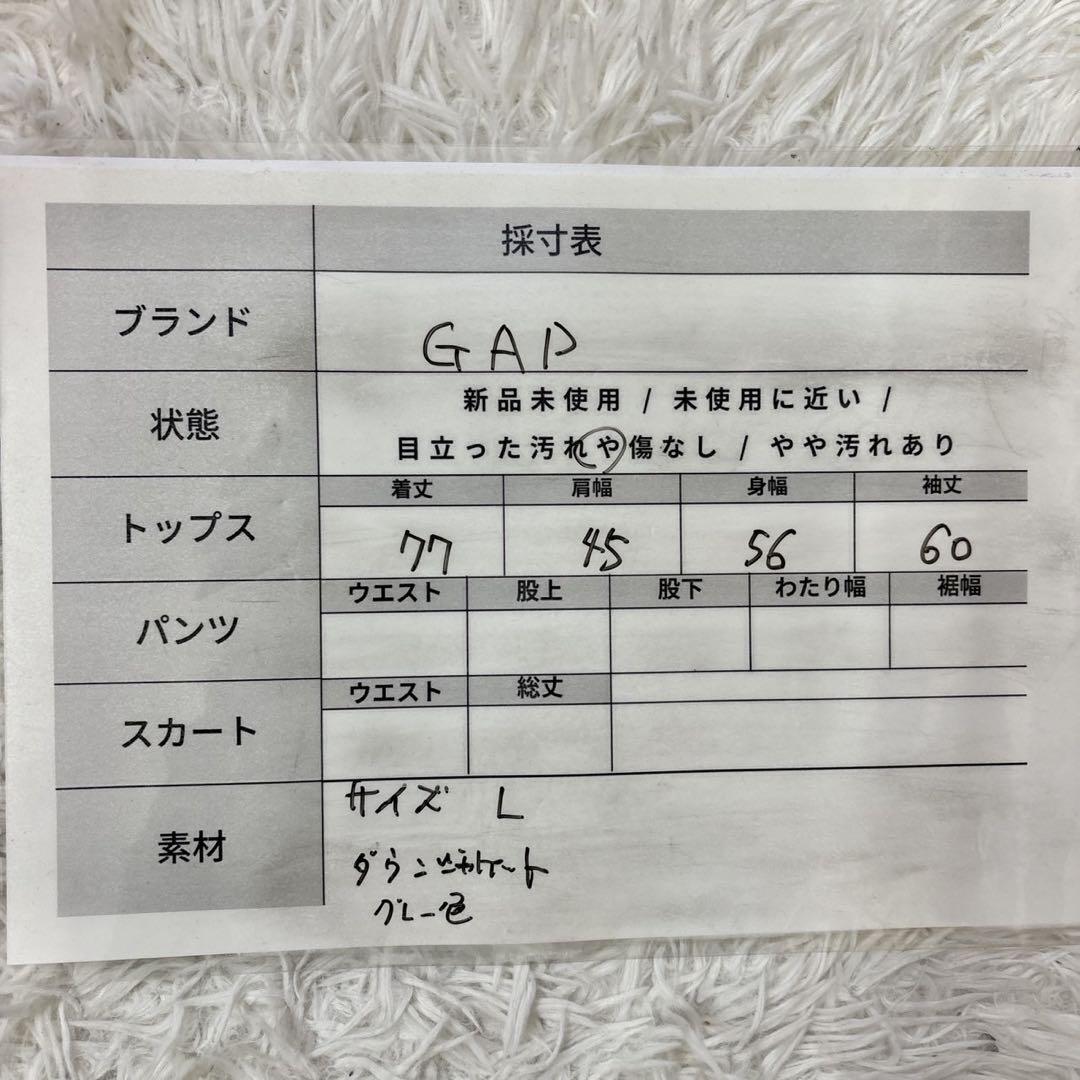 採寸表
ブランド GAP
状態 新品未使用 / 未使用に近い /
目立った汚れや傷なし / やや汚れあり
トップス 着丈 肩幅 身幅 袖丈
77 45 56 60
パンツ ウエスト 股上 股下 わたり幅 裾幅
スカート ウエスト 総丈
素材 サイズ L
ダウンジャケット
グレー色